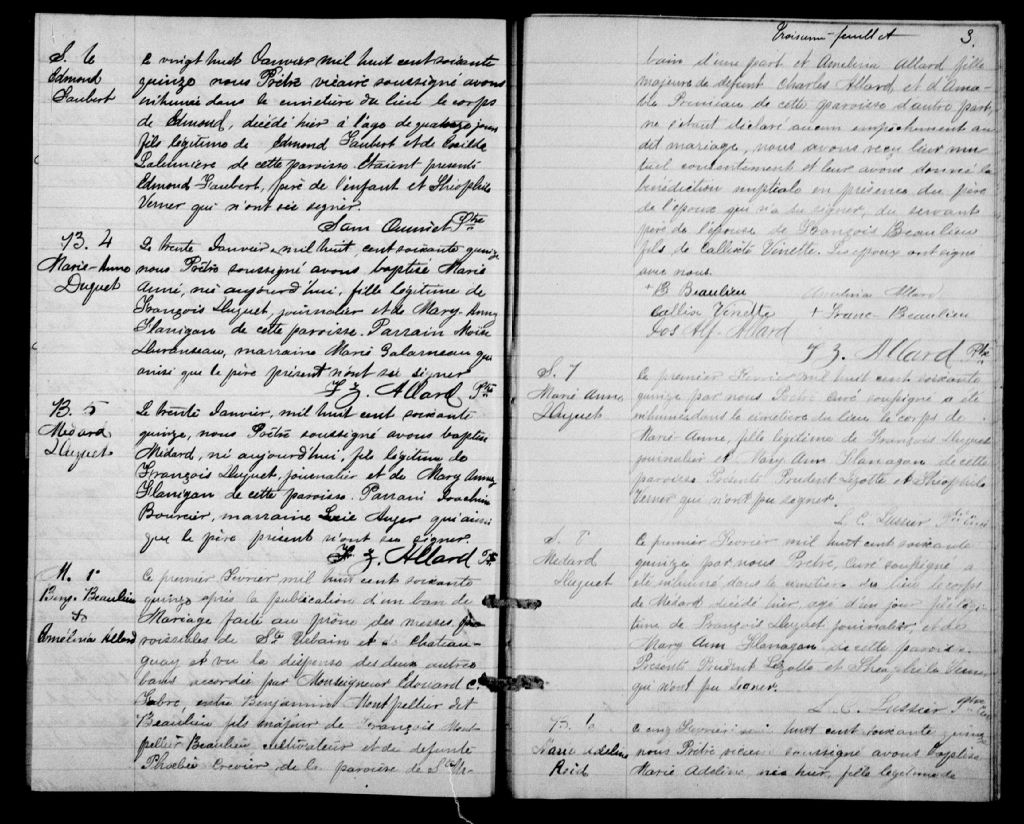 S. 6
Edmond
Faubert
Le vingt huit Janvier mil huit cent soixante
quinze nous Prêtre vicaire soussigné avons
inhumé dans le cimetière du lieu le corps
de Edmond, décédé hier à l'age de jours
fils légitime de Edmond Faubert et de
Lalumiere de cette paroisse. Etaient présents
Edmond Faubert, père de l'enfant et Théophile
Verner qui n'ont su signer.
Sam Ouimet Ptre
B. 4
Marie-Anne
Duquet
Le trente Janvier, mil huit cent soixante quinze
nous Prêtre soussigné avons baptisé Marie
Anne, née aujourd'hui, fille légitime de
François Duquet, journalier et de Mary Anny
Flanigan de cette paroisse. Parrain Moise
marraine Marie Galarneau qui
ainsi que le père présent n'ont su signer
F Z. Allard Ptre
B. 5
Médard
Duquet
Le trente Janvier, mil huit cent soixante
quinze, nous Prêtre soussigné avons baptisé
Médard, né aujourd'hui, fils légitime de
François Duquet, journalier et de Mary Anny
Flanigan de cette paroisse. Parrain Joachim
Bourcier, marraine Auger qui ainsi
que le père présent n'ont su signer.
F. Z. Allard Ptre
M. 1
Benj. Beaulieu
&
Amélina Allard
Le premier Février mil huit cent soixante
quinze après la publication d'un ban de
Mariage faite au prône des messes pa
roissiales de St Urbain et de Chateau-
guay et vu la dispense des deux autres
bans accordée par Monseigneur Edouard C.
Fabre, entre Benjamin Montpellier dit
Beaulieu fils majeur de François Mont
pellier Beaulieu cultivateur et de défunte
Phoebée Crevier de la paroisse de St Ur-
Troisième feuillet 3.
bain d'une part et Amelina Allard fille
majeure de défunt Charles Allard et d'Ama-
ble Primeau de cette paroisse d'autre part,
ne s'étant déclaré aucun empêchement au
dit mariage, nous avons reçu leur mu-
tuel consentement et leur avons donné la
bénédiction nuptiale en présence du père
de l'époux qui n'a su signer, du servant
père de l'épouse de François Beaulieu
fils de Callixte Vinette. Les époux ont signé
avec nous.
+ B Beaulieu Amelina Allard
Callixte Vinette + Franc. Beaulieu
Jos Alf. Allard
F Z. Allard Ptre
S. 7
Marie Anne
Duquet
Le premier Février mil huit cent soixante
quinze par nous Prêtre Curé soussigné a été
inhumé dans le cimetière du lieu le corps de
Marie Anne, fille légitime de François Duquet
journalier et Mary Ann Flanagan de cette
paroisse. Présents Prudent Lizotte et Théophile
Verner qui n'ont pu signer.
L. C. Lussier Ptre Curé
S. 8
Médard
Duquet
Le premier Février mil huit cent soixante
quinze par nous Prêtre, Curé soussigné a
été inhumé dans le cimetière du lieu le corps
de Médard décédé hier, agé d'un jour fils légi-
time de François Duquet journalier, et de
Mary Ann Flanagan de cette paroisse.
Présents Prudent Lizotte et Théophile Verner
qui n'ont pu signer.
L. C. Lussier Ptre Curé
B. 6
Marie Adeline
Reid
Le cinq Février mil huit cent soixante quinze
nous Prêtre vicaire soussigné avons baptisé
Marie Adeline, née hier, fille légitime de